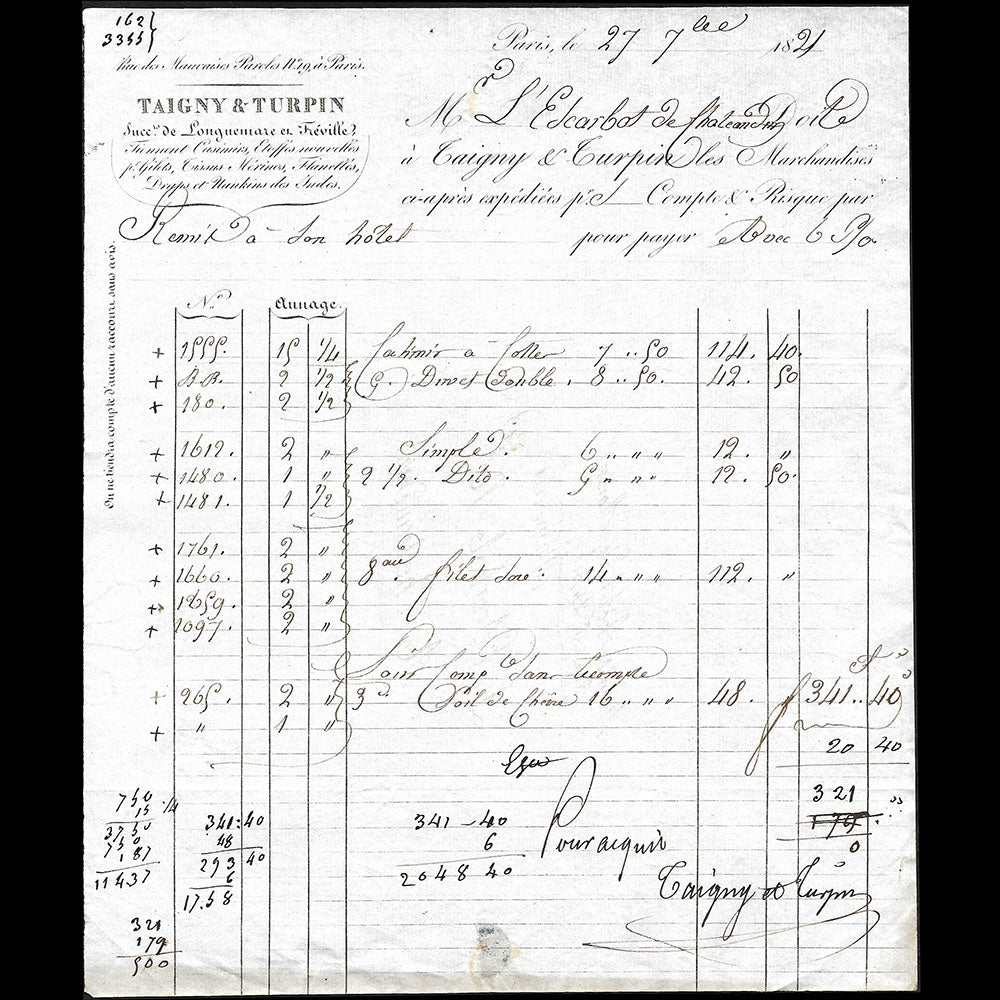 162
3355
Rue des Mauvaises Paroles No. 19, à Paris.
TAIGNY & TURPIN
Succrs. de Longuemare et Fréville,
Tiennent Casimirs, Etoffes nouvelles
pr. Gilets, Tissus Mérinos, Flanelles,
Draps et Nankins des Indes.
Paris, le 27 7bre 1821
Mr L'Escarbot de Chateaudun Doit
à Taigny & Turpin les Marchandises
ci-après expédiées pr. S Compte & Risque par
Remis à son hôtel pour payer Avec 6 P%
On ne tiendra compte d'aucun raccourci sans avis.
No. Aunage.
+ 1555. 15 1/4 Casimir a Cotte 7 .. 50 114. 40.
+ AR. 2 1/2 5. Duvet Double. 8 .. 50. 42. 50
+ 180. 2 1/2
+ 1612. 2 " Simple. 6 " " " 12. "
+ 1480. 1 " 2 1/2. Dito. 5 " " " 12. 50.
+ 1481. 1 1/2
+ 1761. 2 "
+ 1660. 2 " 8 au. filet soie. 14 " " " 112. "
+ 1259. 2 "
+ 1097. 2 "
+ 265. 2 " 3 Poil de Chèvre 16 " " " 48. f 341 .. 40
+ " 1 "
20 40
321
179
0
750
15 1/4
3750
750
187
11437
341:40
48
293 40
6
17.58
321
179
500
341 - 40
6
2048 40
Pour acquit
Taigny et Turpin